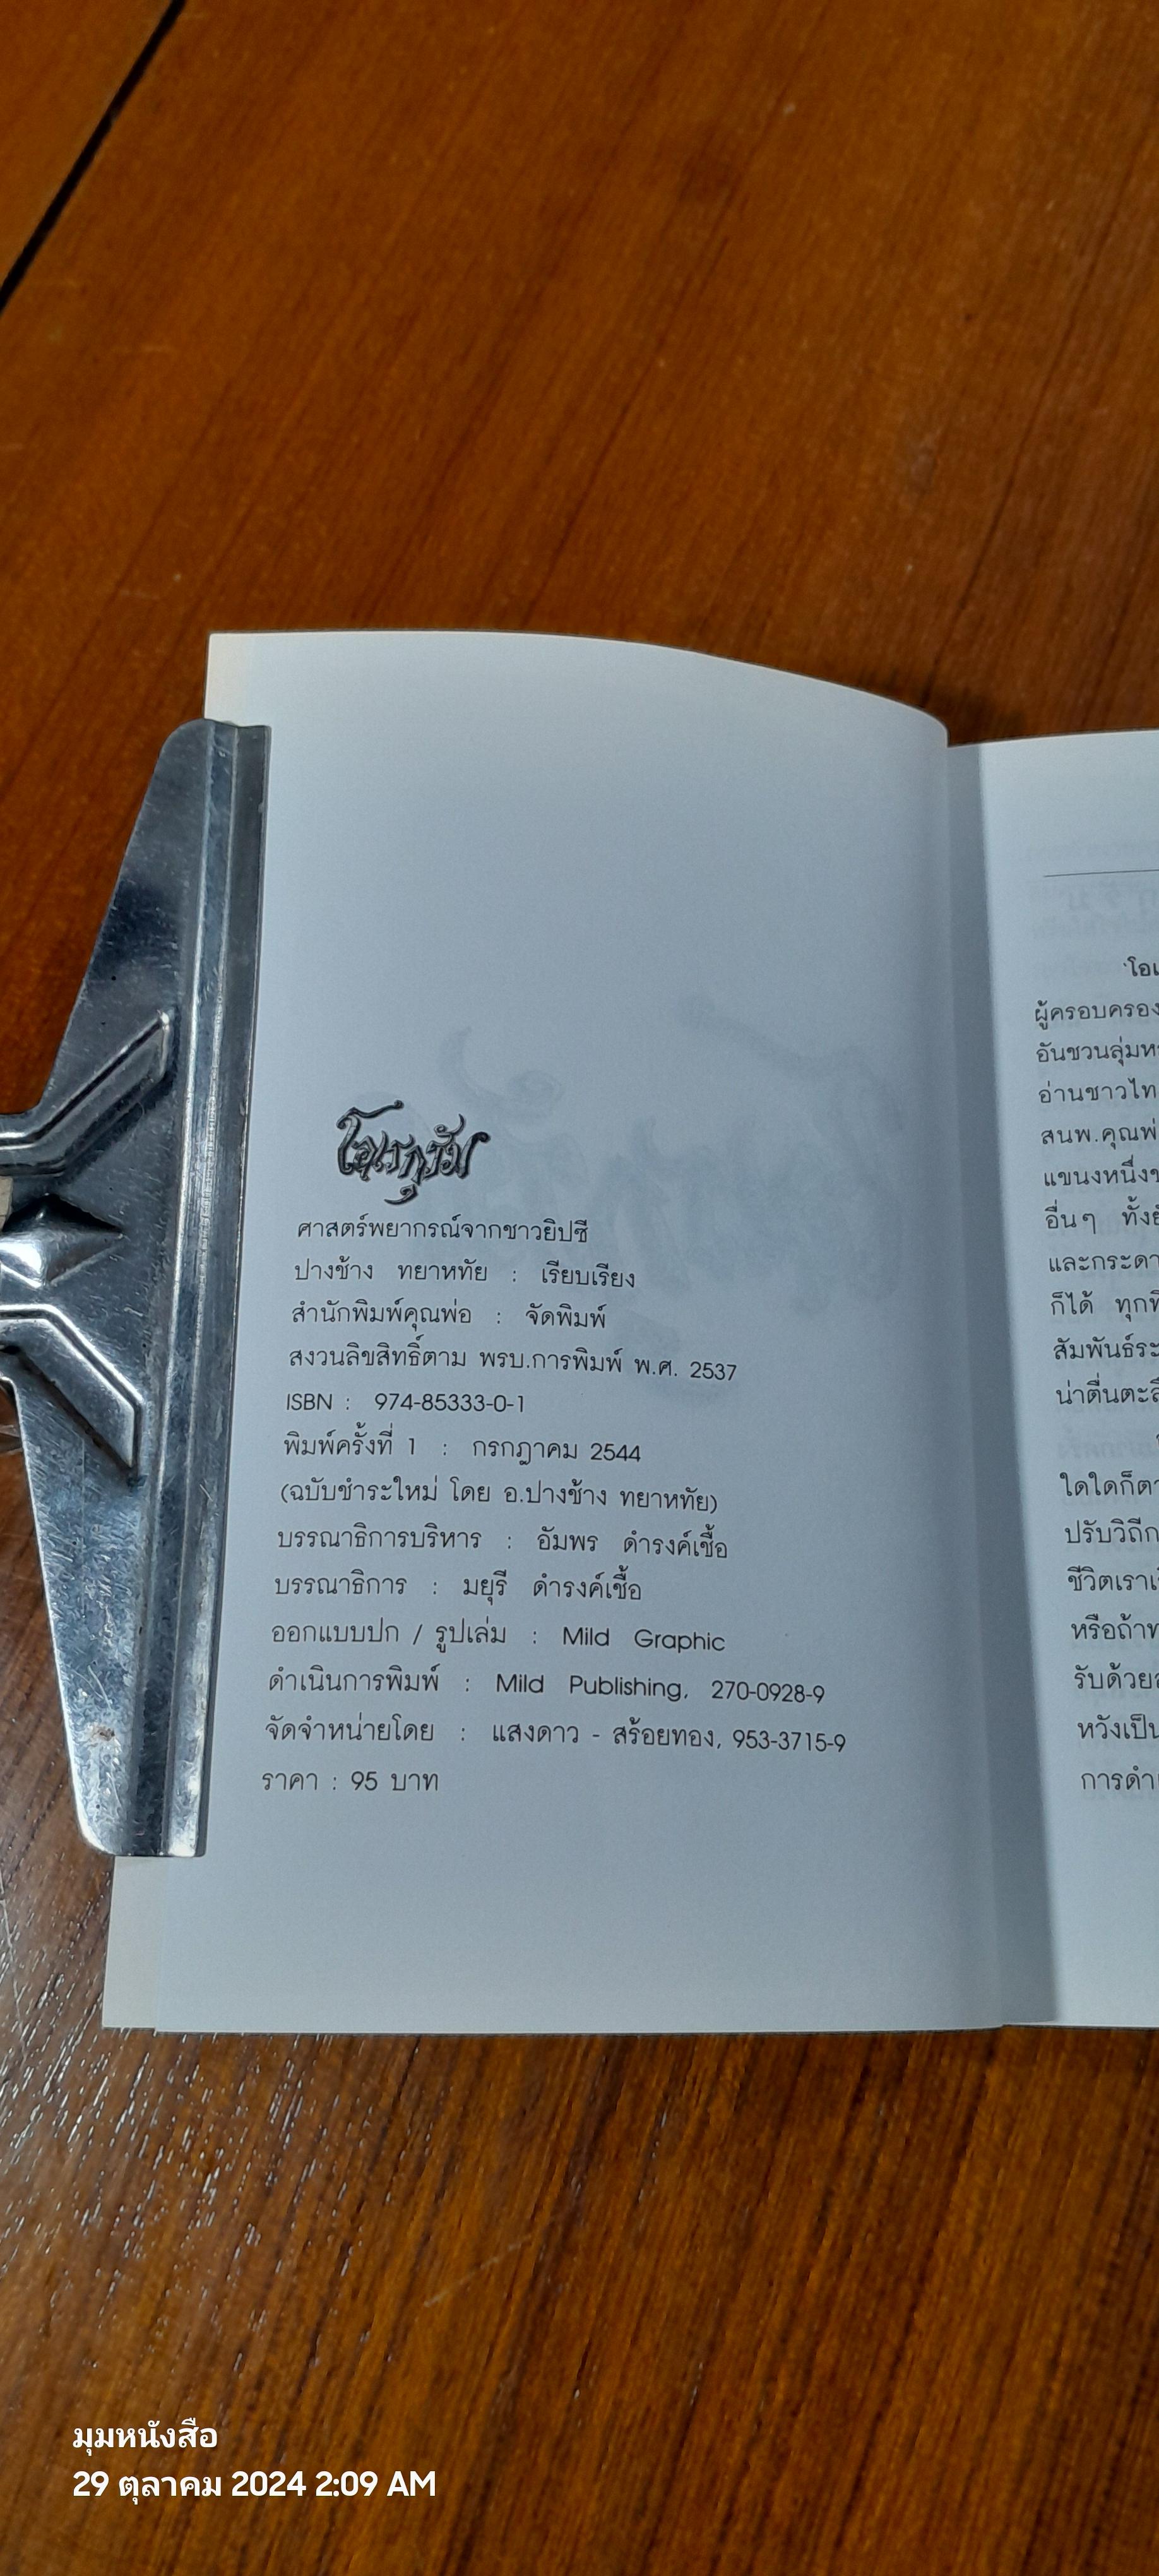 โอเรกุรัม
ศาสตร์พยากรณ์จากชาวยิปซี
ปางช้าง ทยาหทัย : เรียบเรียง
สำนักพิมพ์คุณพ่อ : จัดพิมพ์
สงวนลิขสิทธิ์ตาม พรบ.การพิมพ์ พ.ศ. 2537
ISBN : 974-85333-0-1
พิมพ์ครั้งที่ 1 : กรกฎาคม 2544
(ฉบับชำระใหม่ โดย อ.ปางช้าง ทยาหทัย)
บรรณาธิการบริหาร : อัมพร ดำรงค์เชื้อ
บรรณาธิการ : มยุรี ดำรงค์เชื้อ
ออกแบบปก / รูปเล่ม : Mild Graphic
ดำเนินการพิมพ์ : Mild Publishing, 270-0928-9
จัดจำหน่ายโดย : แสงดาว - สร้อยทอง, 953-3715-9
ราคา : 95 บาท
ผู้ครอบครอง
อันชวนลุ่มห
อ่านชาวไท
สนพ.คุณพ่
แขนงหนึ่งข
อื่นๆ ทั้งยั
และกระดา
ก็ได้ ทุกที
สัมพันธ์ระ
น่าตื่นตะลึ
ใดใดก็ตา
ปรับวิถีก
ชีวิตเราเ
หรือถ้าท
รับด้วย
หวังเป็น
การดำ
มุมหนังสือ
29 ตุลาคม 2024 2:09 AM